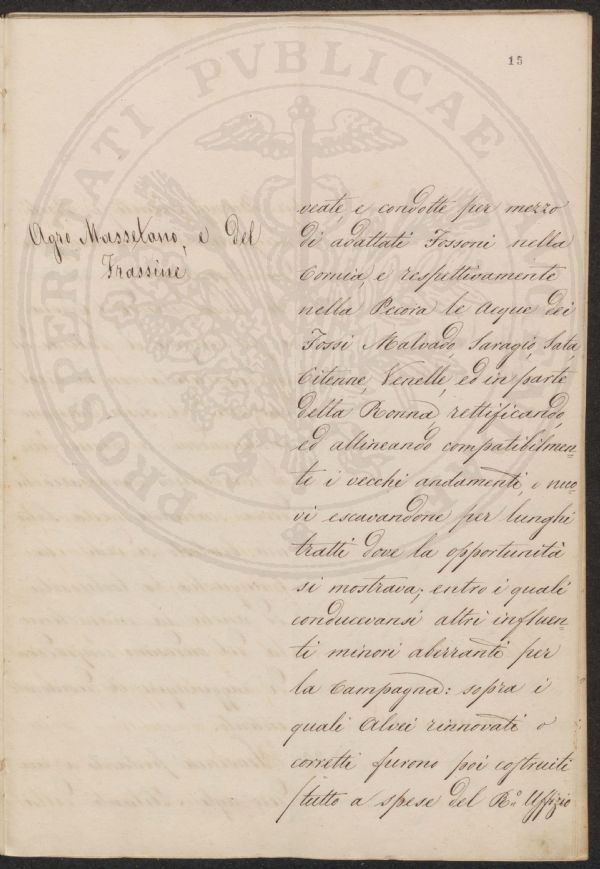 15
Agro Massetano, e del
Frassine
veate, e condotte per mezzo
di adattati Fossoni nella
Cornia, e respettivamente
nella Pecora le Acque dei
Fossi Malvado, Saragio, Sata,
Citerne, Venelle, ed in parte
della Ronna, rettificando,
ed allineando compatibilmen-
te i vecchi andamenti, e nuo-
vi escavandone per lunghi
tratti dove la opportunità
si mostrava; entro i quali
conducevansi altri influen-
ti minori aberranti per
la Campagna: sopra i
quali Alvei rinnovati o
corretti furono poi costruiti
/tutto a spese del R.º Uffizio
PROSPERITATI PVBLICAE